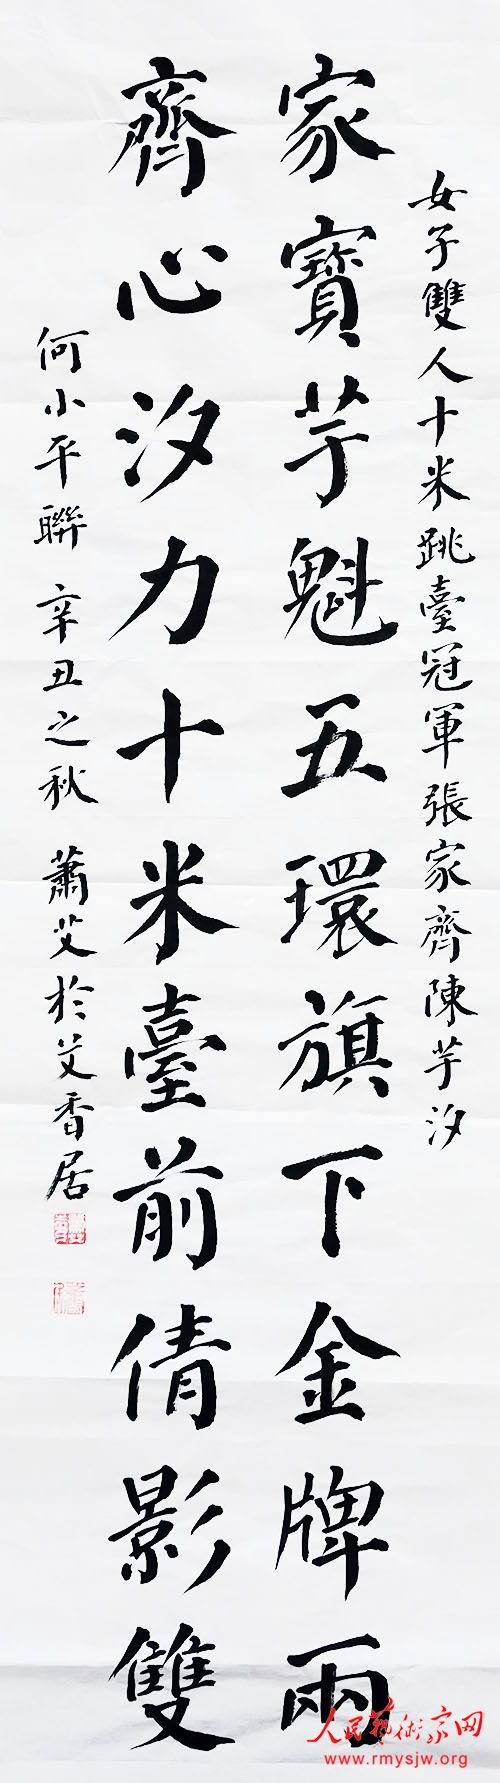 女子雙人十米跳臺冠軍張家齊陳芋汐
家寶芋魁五環旗下金牌兩
齊心汐力十米臺前倩影雙
何小平聯 辛丑之秋 蕭艾於艾香居
人民藝術家网
www.rmysjw.org